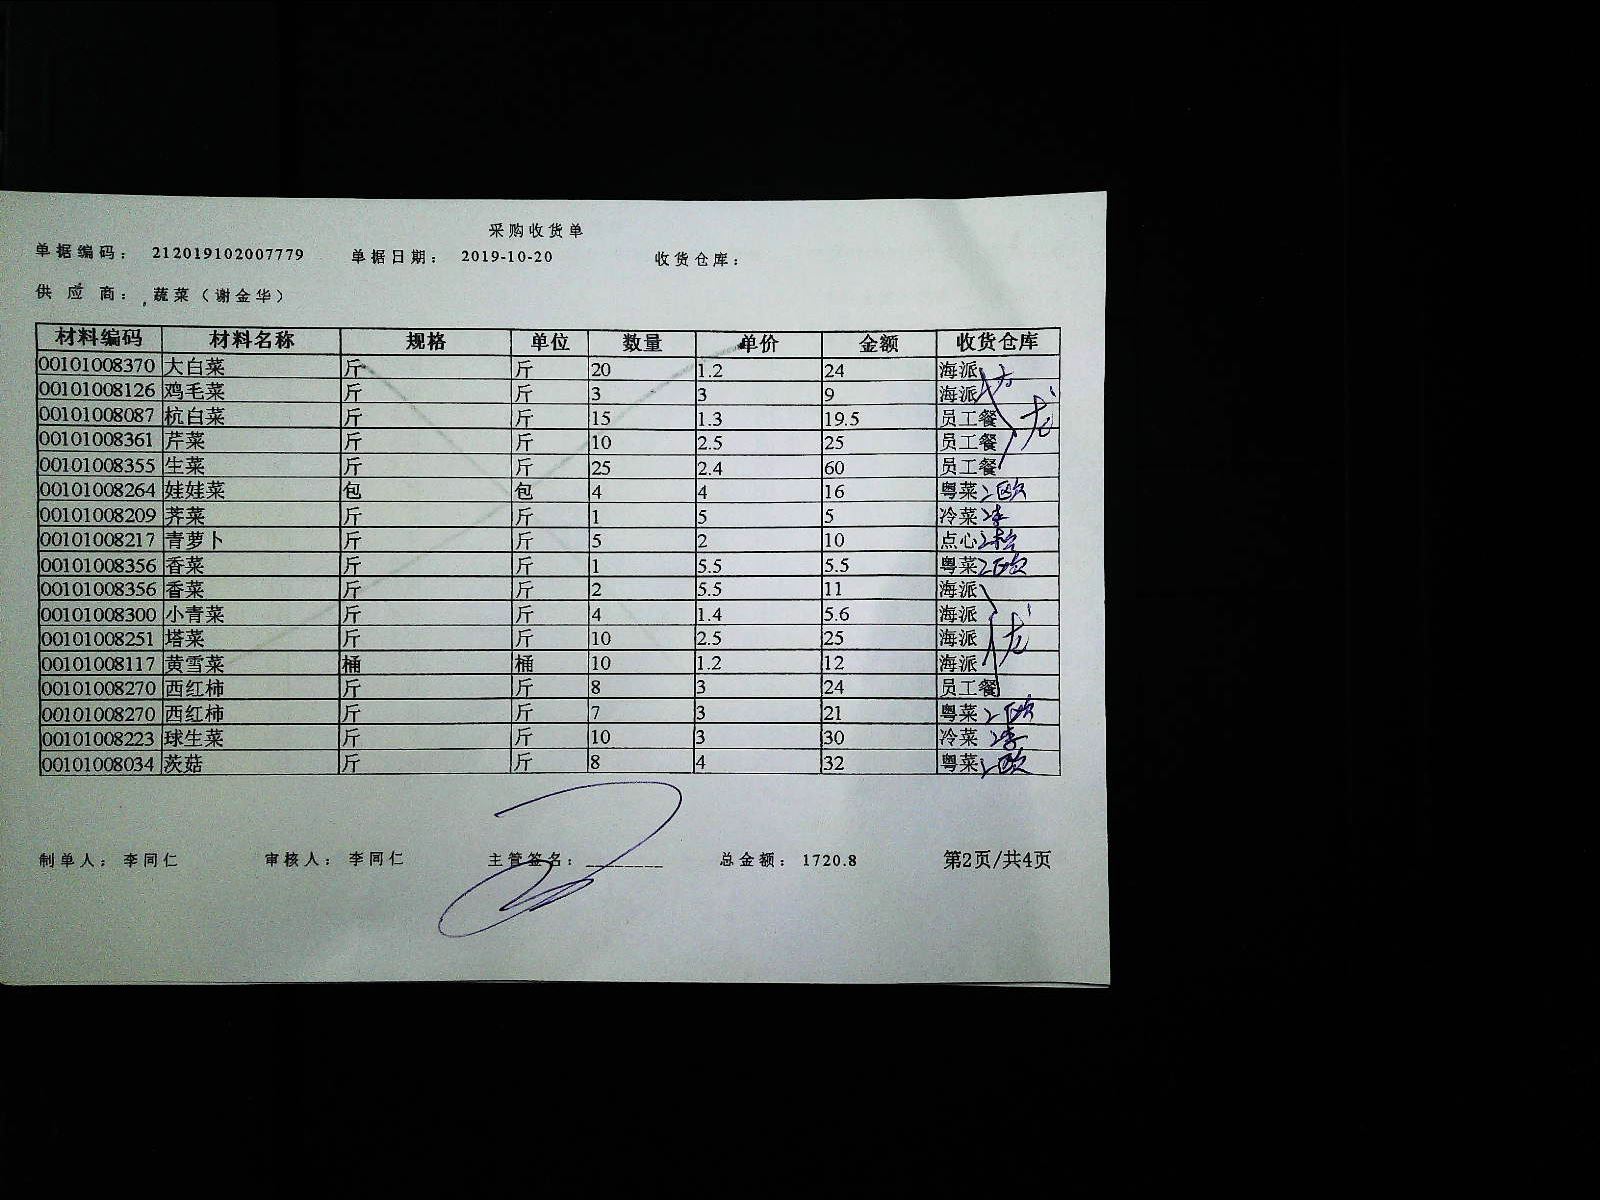 采购收货单
单据编码： 212019102007779 单据日期： 2019-10-20 收货仓库：
供应商： 蔬菜（谢金华）
材料编码 材料名称 规格 单位 数量 单价 金额 收货仓库
00101008370 大白菜 斤 斤 20 1.2 24 海派
00101008126 鸡毛菜 斤 斤 3 3 9 海派
00101008087 杭白菜 斤 斤 15 1.3 19.5 员工餐
00101008361 芹菜 斤 斤 10 2.5 25 员工餐
00101008355 生菜 斤 斤 25 2.4 60 员工餐
00101008264 娃娃菜 包 包 4 4 16 粤菜 欧
00101008209 荠菜 斤 斤 1 5 5 冷菜 李
00101008217 青萝卜 斤 斤 5 2 10 点心
00101008356 香菜 斤 斤 1 5.5 5.5 粤菜 欧
00101008356 香菜 斤 斤 2 5.5 11 海派
00101008300 小青菜 斤 斤 4 1.4 5.6 海派
00101008251 塔菜 斤 斤 10 2.5 25 海派
00101008117 黄雪菜 桶 桶 10 1.2 12 海派
00101008270 西红柿 斤 斤 8 3 24 员工餐
00101008270 西红柿 斤 斤 7 3 21 粤菜 欧
00101008223 球生菜 斤 斤 10 3 30 冷菜 李
00101008034 茨菇 斤 斤 8 4 32 粤菜 欧
制单人： 李同仁 审核人： 李同仁 主管签名： 总金额： 1720.8 第2页/共4页